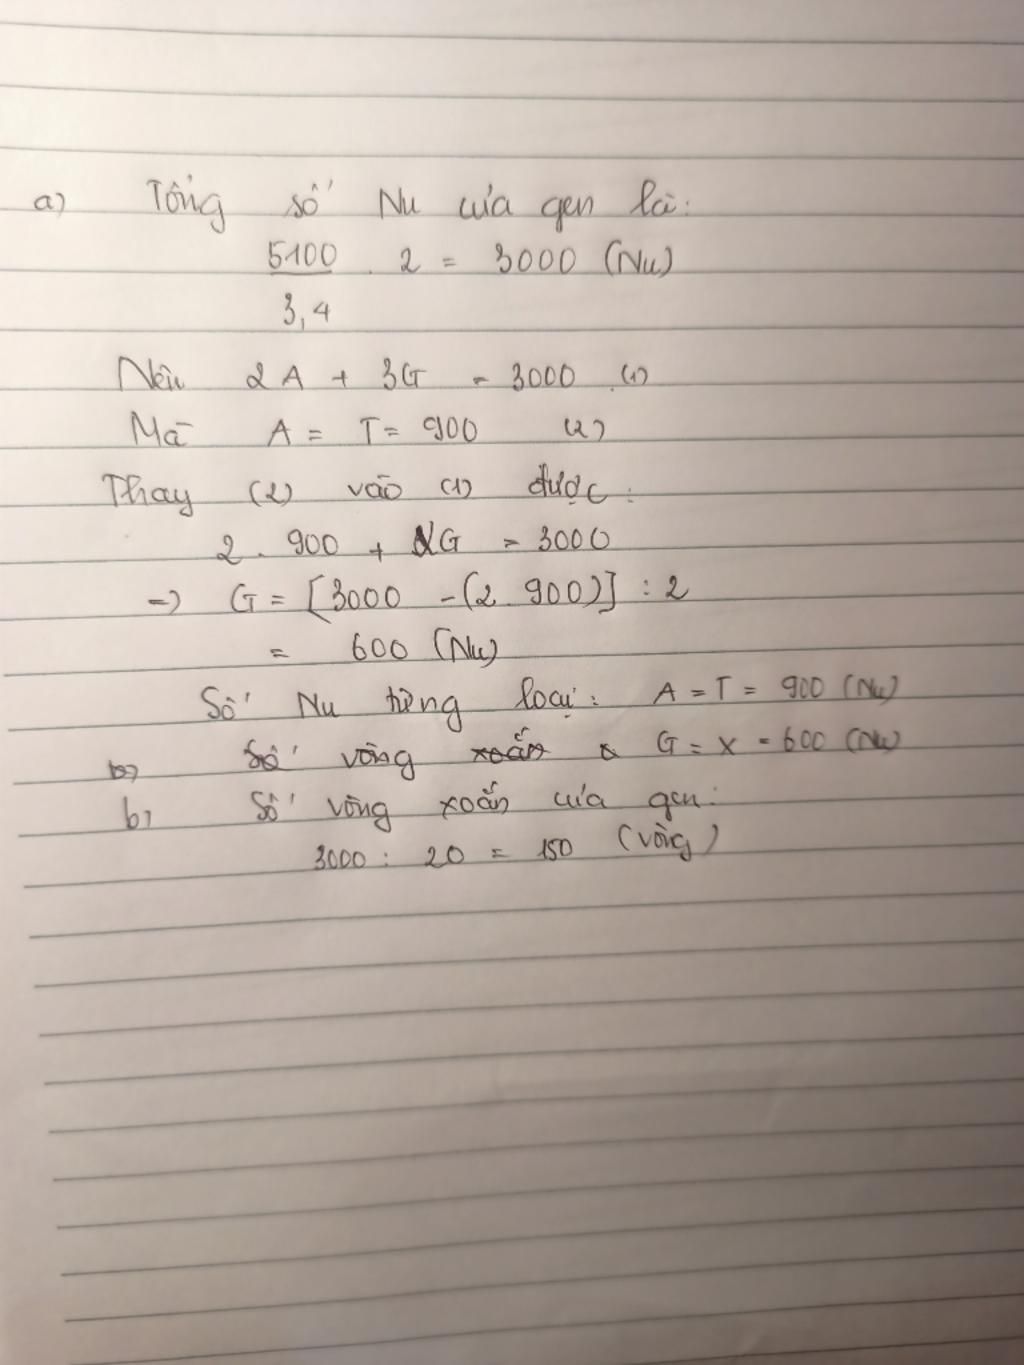 a) Tổng số Nu của gen là:
5100 . 2 = 3000 (Nu)
3,4
Nếu 2A + 3G = 3000 (1)
Mà A = T = 900 (2)
Thay (2) vào (1) được:
2 . 900 + 2G = 3000
=> G = [3000 - (2.900)] : 2
= 600 (Nu)
Số Nu từng loại: A = T = 900 (Nu)
b) Số vòng xoắn G = X = 600 (Nu)
b) Số vòng xoắn của gen:
3000 : 20 = 150 (vòng)